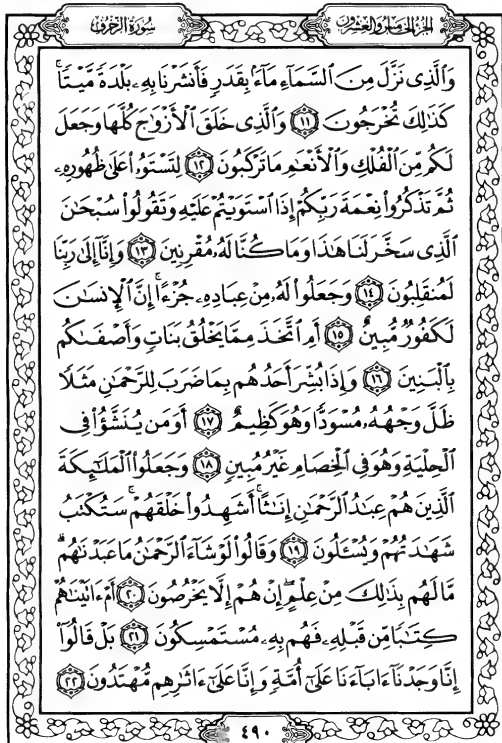 الجزء الخامس والعشرون
سورة الزخرف
وَالَّذِي نَزَّلَ مِنَ السَّمَاءِ مَاءً بِقَدَرٍ فَأَنشَرْنَا بِهِ بَلْدَةً مَّيْتًا
كَذَٰلِكَ تُخْرَجُونَ ١١ وَالَّذِي خَلَقَ الْأَزْوَاجَ كُلَّهَا وَجَعَلَ
لَكُم مِّنَ الْفُلْكِ وَالْأَنْعَامِ مَا تَرْكَبُونَ ١٢ لِتَسْتَوُوا عَلَىٰ ظُهُورِهِ
ثُمَّ تَذْكُرُوا نِعْمَةَ رَبِّكُمْ إِذَا اسْتَوَيْتُمْ عَلَيْهِ وَتَقُولُوا سُبْحَانَ
الَّذِي سَخَّرَ لَنَا هَٰذَا وَمَا كُنَّا لَهُ مُقْرِنِينَ ١٣ وَإِنَّا إِلَىٰ رَبِّنَا
لَمُنقَلِبُونَ ١٤ وَجَعَلُوا لَهُ مِنْ عِبَادِهِ جُزْءًا إِنَّ الْإِنسَانَ
لَكَفُورٌ مُّبِينٌ ١٥ أَمِ اتَّخَذَ مِمَّا يَخْلُقُ بَنَاتٍ وَأَصْفَاكُم
بِالْبَنِينَ ١٦ وَإِذَا بُشِّرَ أَحَدُهُم بِمَا ضَرَبَ لِلرَّحْمَٰنِ مَثَلًا
ظَلَّ وَجْهُهُ مُسْوَدًّا وَهُوَ كَظِيمٌ ١٧ أَوَمَن يُنَشَّؤُا فِي
الْحِلْيَةِ وَهُوَ فِي الْخِصَامِ غَيْرُ مُبِينٍ ١٨ وَجَعَلُوا الْمَلَائِكَةَ
الَّذِينَ هُمْ عِبَادُ الرَّحْمَٰنِ إِنَاثًا أَشَهِدُوا خَلْقَهُمْ سَتُكْتَبُ
شَهَادَتُهُمْ وَيُسْأَلُونَ ١٩ وَقَالُوا لَوْ شَاءَ الرَّحْمَٰنُ مَا عَبَدْنَاهُم
مَّا لَهُم بِذَٰلِكَ مِنْ عِلْمٍ إِنْ هُمْ إِلَّا يَخْرُصُونَ ٢٠ أَمْ آتَيْنَاهُمْ
كِتَابًا مِّن قَبْلِهِ فَهُم بِهِ مُسْتَمْسِكُونَ ٢١ بَلْ قَالُوا
إِنَّا وَجَدْنَا آبَاءَنَا عَلَىٰ أُمَّةٍ وَإِنَّا عَلَىٰ آثَارِهِم مُّهْتَدُونَ ٢٢
٤٩٠